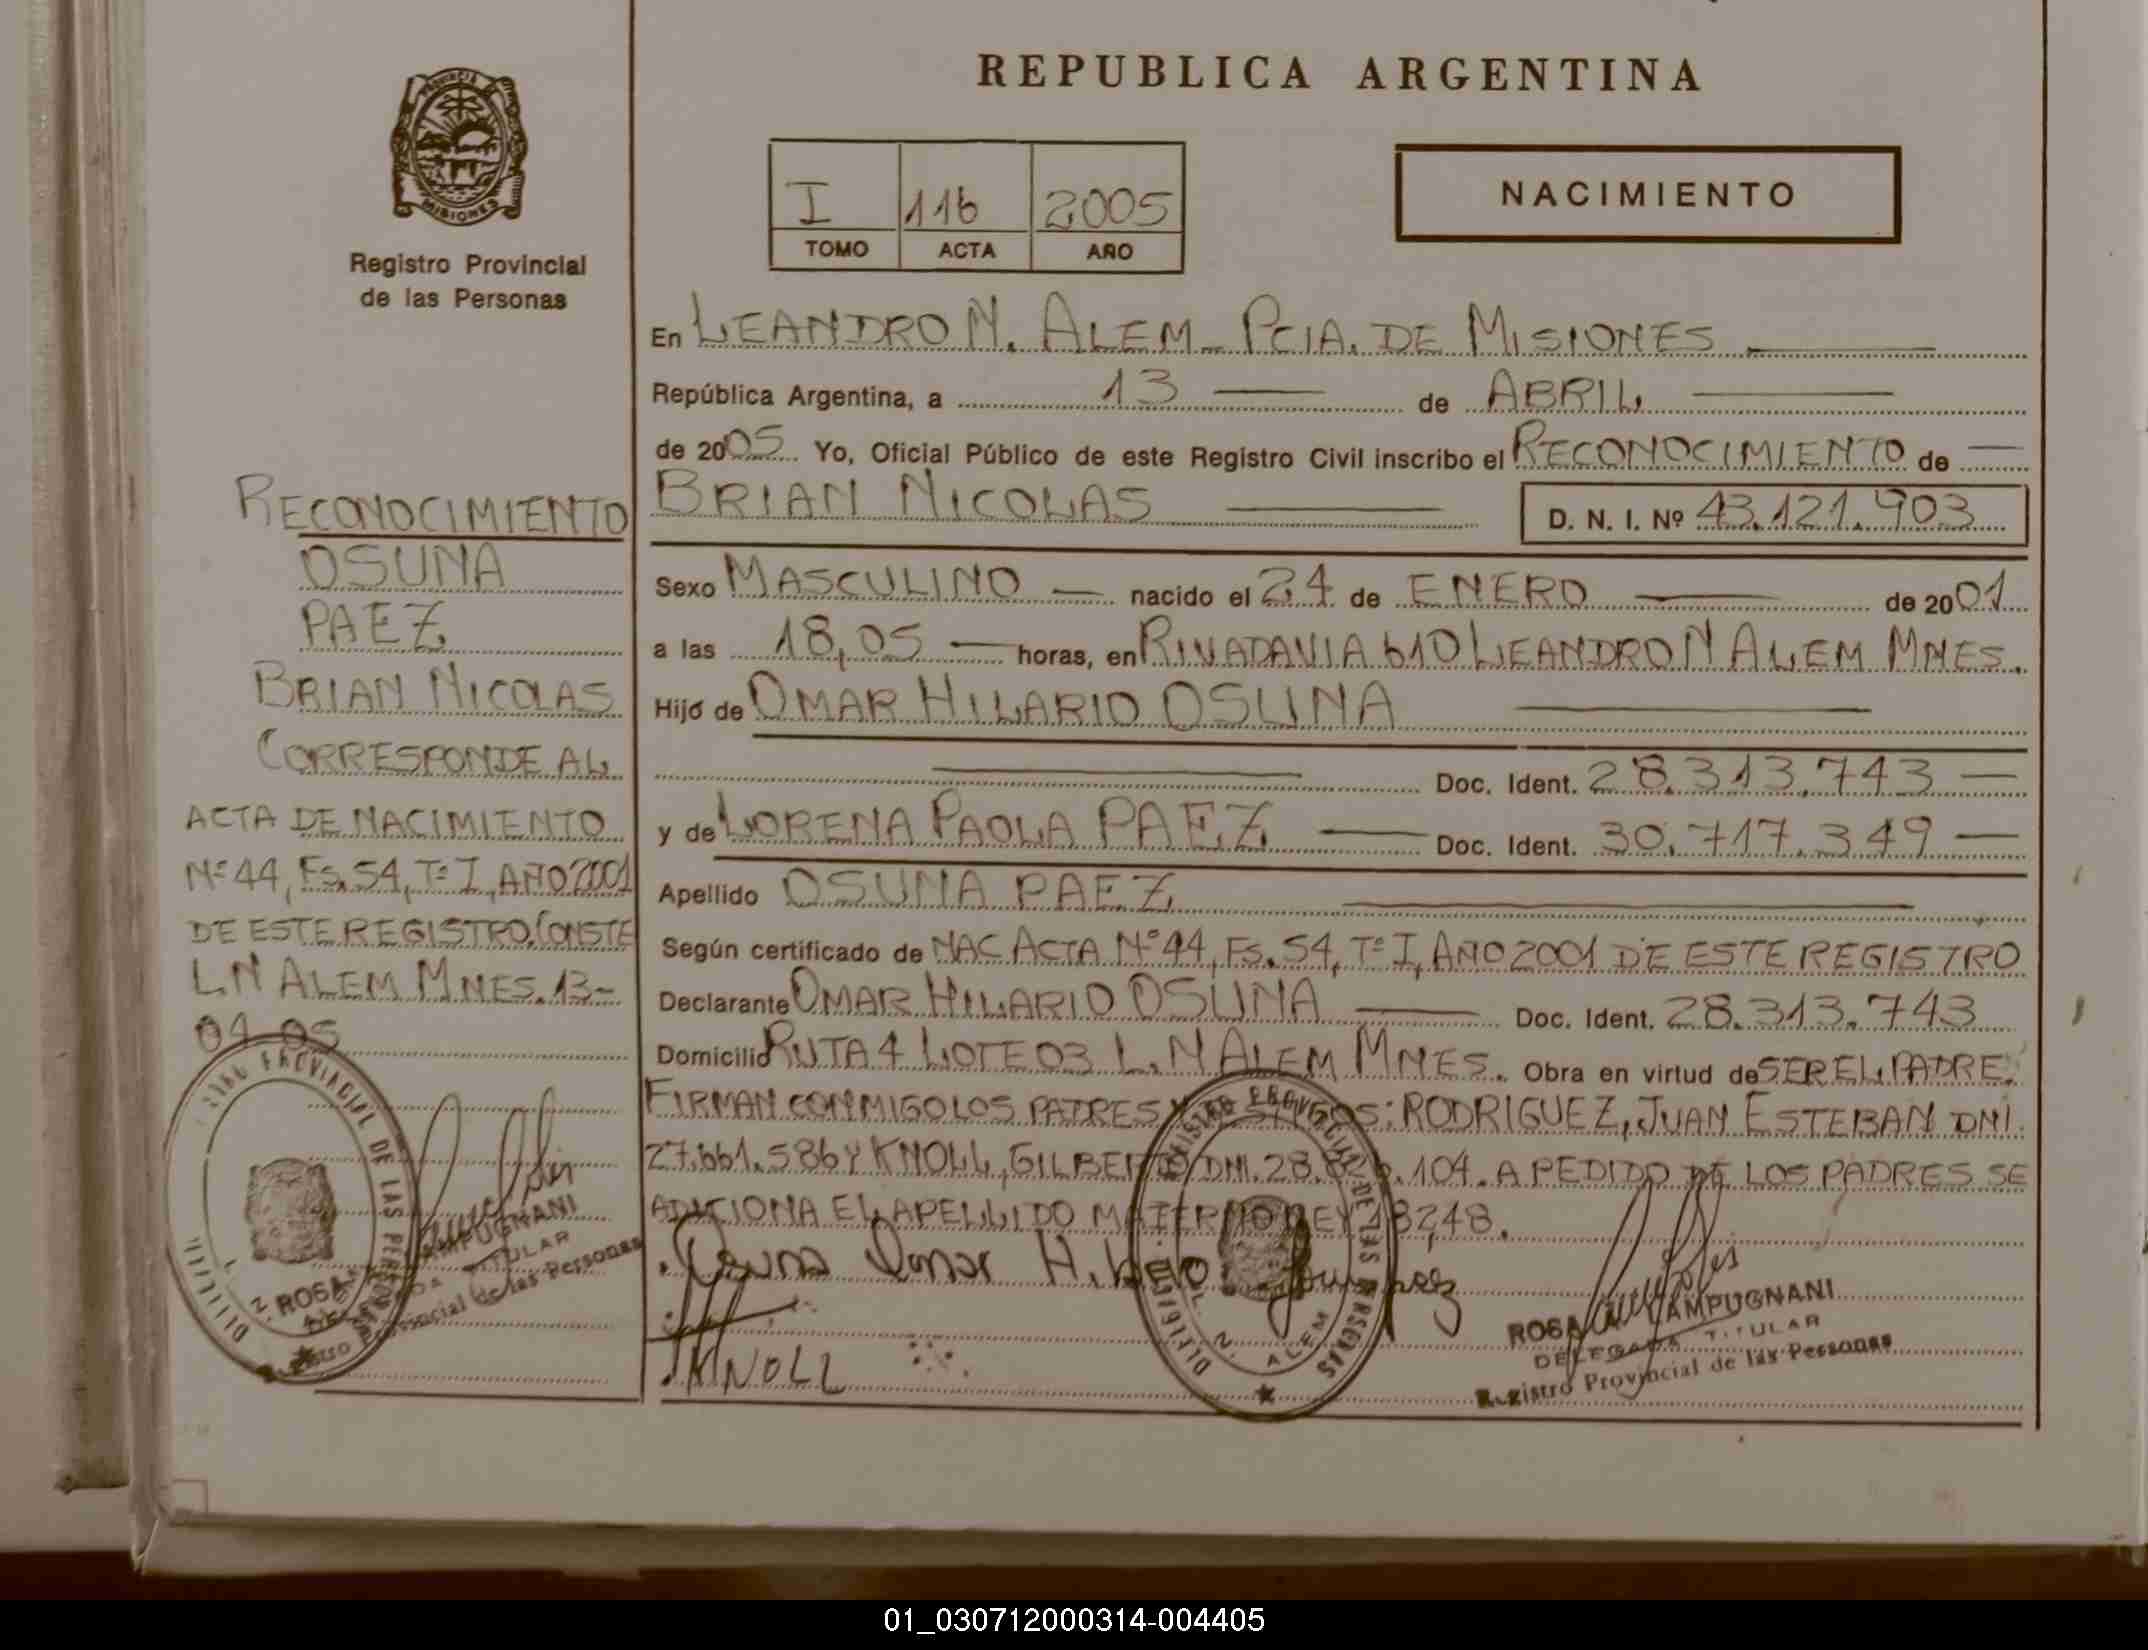 PROVINCIA DE
MISIONES
Registro Provincial
de las Personas
RECONOCIMIENTO
OSUNA
PAEZ
BRIAN NICOLAS
CORRESPONDE AL
ACTA DE NACIMIENTO
Nº 44, Fs. 54, Tº I, AÑO 2001
DE ESTE REGISTRO. CONSTE
L.N ALEM MNES. 13-
04 05
PROVINCIAL DE LAS PERSONAS
ROSA LAMPUGNANI
TITULAR
Registro Provincial de las Personas
REPUBLICA ARGENTINA
I 116 2005
TOMO ACTA AÑO
NACIMIENTO
En LEANDRO N. ALEM - PCIA. DE MISIONES
República Argentina, a 13 de ABRIL
de 2005 Yo, Oficial Público de este Registro Civil inscribo el RECONOCIMIENTO de
BRIAN NICOLAS D. N. I. Nº 43.121.903
Sexo MASCULINO nacido el 24 de ENERO de 2001
a las 18,05 horas, en RIVADAVIA 610 LEANDRO N ALEM MNES.
Hijo de OMAR HILARIO OSUNA
Doc. Ident. 28.313.743
y de LORENA PAOLA PAEZ Doc. Ident. 30.717.349
Apellido OSUNA PAEZ
Según certificado de NAC ACTA Nº 44, Fs. 54, Tº I, AÑO 2001 DE ESTE REGISTRO
Declarante OMAR HILARIO OSUNA Doc. Ident. 28.313.743
Domicilio RUTA 4 LOTE 03 L. N ALEM MNES. Obra en virtud de SER EL PADRE.
FIRMAN CONMIGO LOS PADRES Y TESTIGOS: RODRIGUEZ, JUAN ESTEBAN DNI
27.661.586 Y KNOLL, GILBERTO DNI. 28. .104. A PEDIDO DE LOS PADRES SE
ADICIONA EL APELLIDO MATERNO LEY 18248.
Osuna Omar H.
KNOLL
REGISTRO PROVINCIAL DE LAS PERSONAS
N. ALEM
ROSA LAMPUGNANI
DELEGADA TITULAR
Registro Provincial de las Personas
01_030712000314-004405